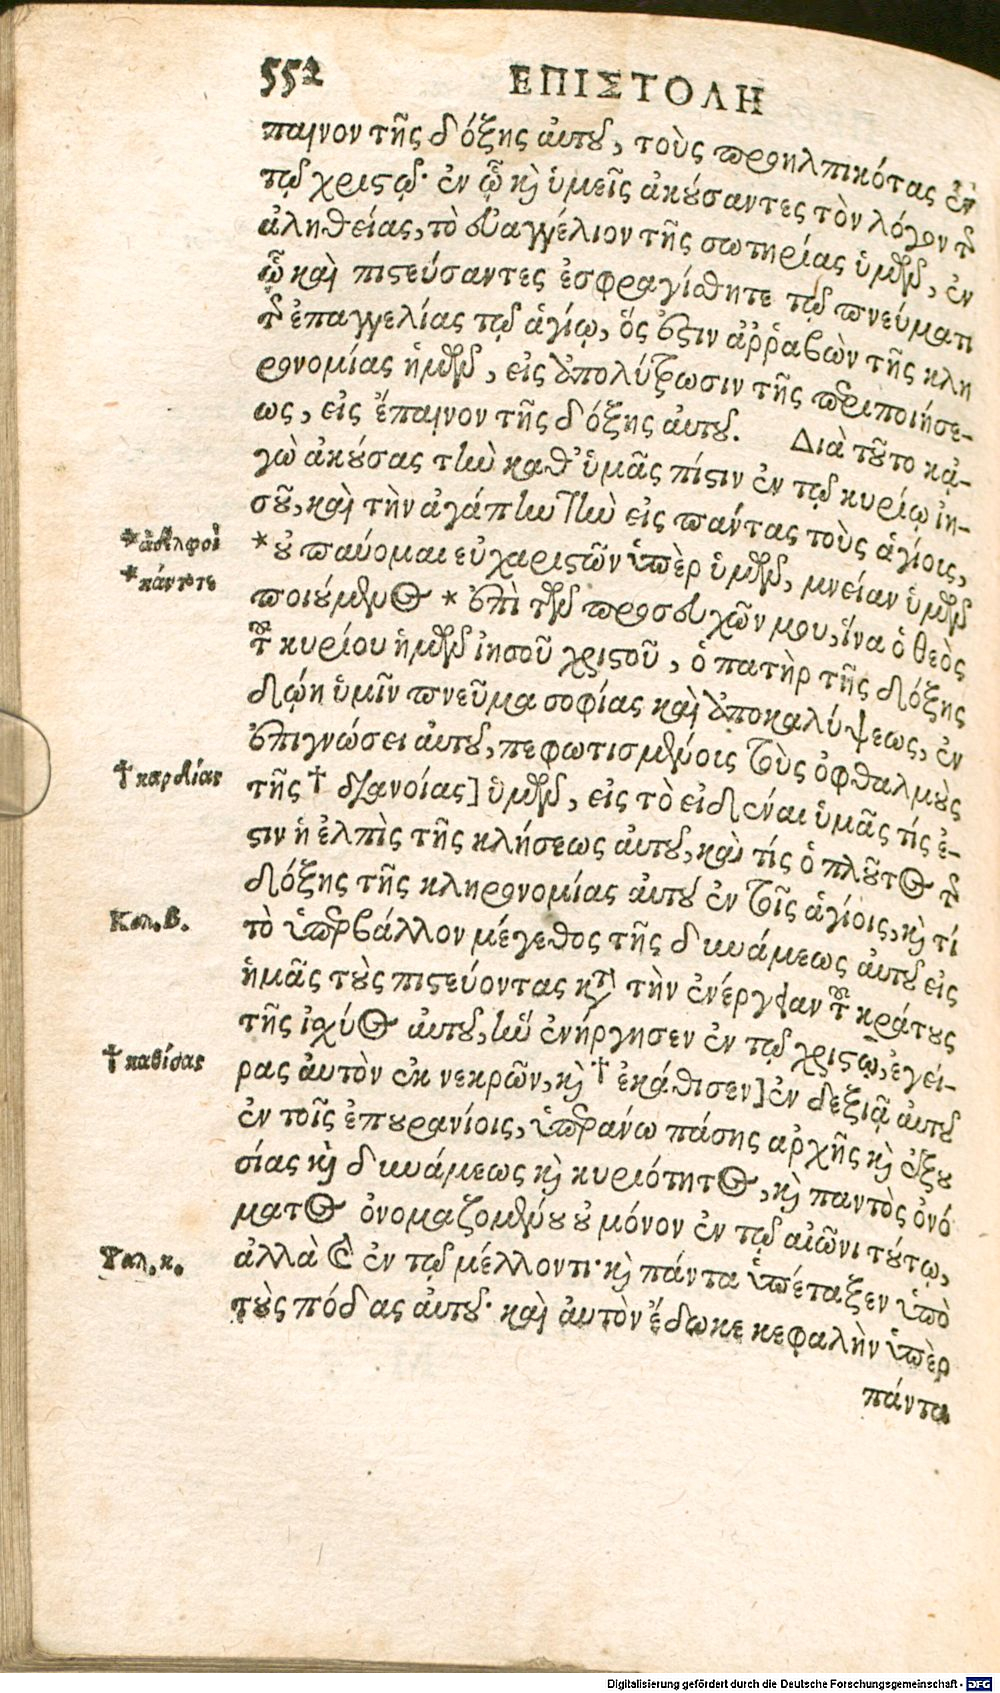 552 ΕΠΙΣΤΟΛΗ
παινον τῆς δόξης αὐτοῦ, τοὺς προηλπικότας ἐν
τῷ χριστῷ· ἐν ᾧ καὶ ὑμεῖς ἀκούσαντες τὸν λόγον τῆς
ἀληθείας, τὸ εὐαγγέλιον τῆς σωτηρίας ὑμῶν, ἐν
ᾧ καὶ πιστεύσαντες ἐσφραγίσθητε τῷ πνεύματι
τῆς ἐπαγγελίας τῷ ἁγίῳ, ὅς ἐστιν ἀῤῥαβὼν τῆς κλη
ρονομίας ἡμῶν, εἰς ἀπολύτρωσιν τῆς περιποιήσε-
ως, εἰς ἔπαινον τῆς δόξης αὐτοῦ. Διὰ τοῦτο κἀ-
γὼ ἀκούσας τὴν καθ' ὑμᾶς πίστιν ἐν τῷ κυρίῳ ἰη-
σοῦ, καὶ τὴν ἀγάπην τὴν εἰς πάντας τοὺς ἁγίοις,
*ἀδελφοὶ
* οὐ παύομαι εὐχαριστῶν ὑπὲρ ὑμῶν, μνείαν ὑμῶν
*πάντοτε
ποιούμενος * ἐπὶ τῶν προσευχῶν μου, ἵνα ὁ θεὸς
τοῦ κυρίου ἡμῶν ἰησοῦ χριστοῦ, ὁ πατὴρ τῆς δόξης
δῴη ὑμῖν πνεῦμα σοφίας καὶ ἀποκαλύψεως, ἐν
ἐπιγνώσει αὐτοῦ, πεφωτισμένοις τοὺς ὀφθαλμοὺς
†καρδίας
τῆς † διανοίας] ὑμῶν, εἰς τὸ εἰδέναι ὑμᾶς τίς ἐ-
στιν ἡ ἐλπὶς τῆς κλήσεως αὐτοῦ, καὶ τίς ὁ πλοῦτος τῆς
δόξης τῆς κληρονομίας αὐτοῦ ἐν τοῖς ἁγίοις, καὶ τί
Κολ. β.
τὸ ὑπερβάλλον μέγεθος τῆς δυνάμεως αὐτοῦ εἰς
ἡμᾶς τοὺς πιστεύοντας κατὰ τὴν ἐνέργειαν τοῦ κράτους
τῆς ἰσχύος αὐτοῦ, ἣν ἐνήργησεν ἐν τῷ χριστῷ, ἐγεί-
†καθίσας
ρας αὐτὸν ἐκ νεκρῶν, καὶ † ἐκάθισεν] ἐν δεξιᾷ αὐτοῦ
ἐν τοῖς ἐπουρανίοις, ὑπεράνω πάσης ἀρχῆς καὶ ἐξου
σίας καὶ δυνάμεως καὶ κυριότητος, καὶ παντὸς ὀνό
ματος ὀνομαζομένου οὐ μόνον ἐν τῷ αἰῶνι τούτῳ,
Ψαλ. κ.
ἀλλὰ καὶ ἐν τῷ μέλλοντι· καὶ πάντα ὑπέταξεν ὑπὸ
τοὺς πόδας αὐτοῦ· καὶ αὐτὸν ἔδωκε κεφαλὴν ὑπὲρ
πάντα
Digitalisierung gefördert durch die Deutsche Forschungsgemeinschaft - DFG